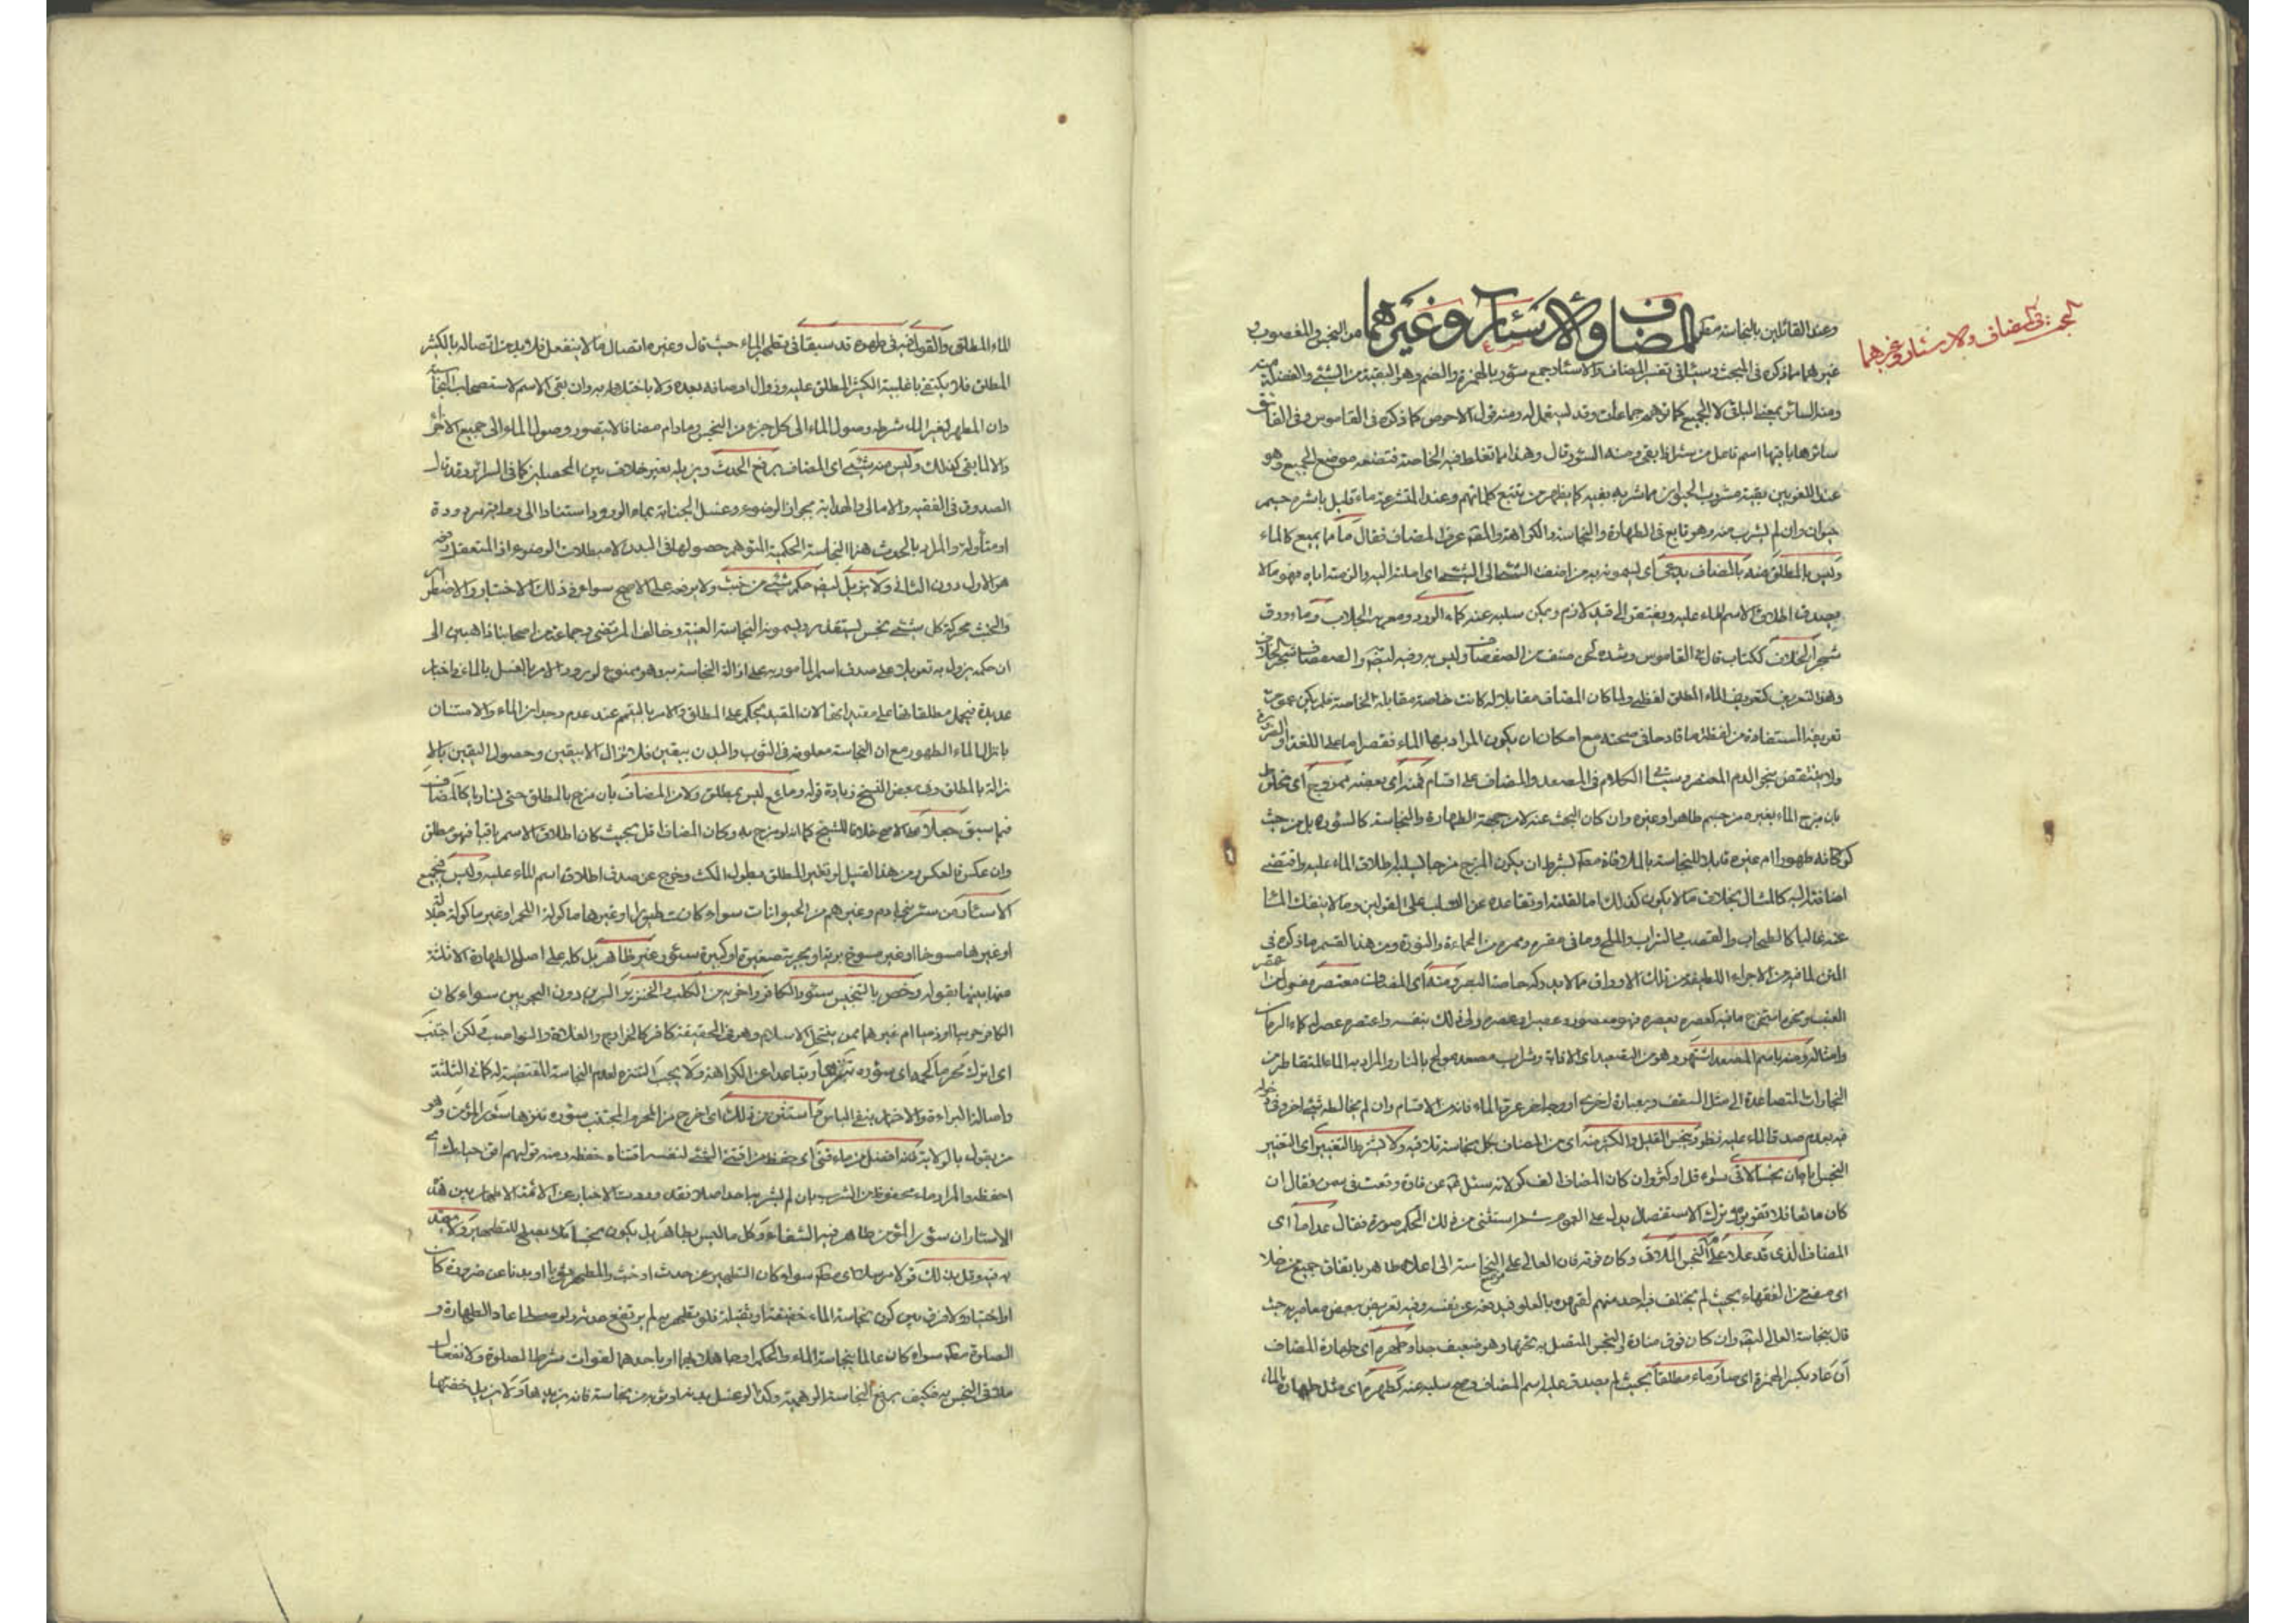 البحث في المضاف والاسئار وغيرهما
وعند القائلين بالنجاسة مط المضاف والاسئار وغيرهما من النجس والمغصوب و
غيرهما ما ذكره في المبحث وسيأتي تفسير المضاف والاسئار جمع سؤر بالهمزة والضم وهو البقية من الشيء والفضلة
ومنه السائر بمعنى الباقي لا الجميع كما توهم جماعات وقد يستعمل له ومنه قول الاحوص كما ذكره في القاموس وفي الفائق
سائرها باقيها اسم فاعل من سئر اذا بقى ومنه السؤر قال وهذا مما تغلط فيه الخاصة فتضعه موضع الجميع وهو
عند اللغويين بقية مشروب الحيوان مما شربه بفيه كما يظهر من تتبع كلماتهم وعند المتشرعة ماء قليل باشره جسم
حيوان وان لم يشرب منه وهو تابع في الطهارة والنجاسة والكراهة والمقه عرف المضاف فقال ما ما يميع كالماء
وليس بالمطلق منه بالمضاف يدعى اي يسمونه به من اضفت الشيء الى الشيء اي املته اليه والزمته اياه فهو ما لا
يصدق اطلاق الاسم الماء عليه ويفتقر الى قيد لازم ويمكن سلبه عنه كماء الورد ومعربه الجلاب وماء ورق
شجر الخلاف ككتاب قال في القاموس وشده لحن صنف من الصفصاف وليس به وفيه ايضا والصفصاف شجر الخلاف
وهذا التعريف كتعريف الماء المطلق لفظي ولما كان المضاف مقابلا له كانت خاصة مقابلة الخاصة فلم يكن عموم
تعريفه المستفادة من لفظة ما قادحا في صحته مع امكان ان يكون المراد بها الماء فقصرا ما على اللغة او الضرورة
ولا ينتقض بنحو الدم المعتصر وسيأتي الكلام في المصعد والمضاف على اقسام فمنه اي بعضه ممزوج اي مخلوط
بان مزج الماء بغيره من جسم طاهر او غيره وان كان البحث عنه لا من جهة الطهارة والنجاسة كالسؤر بل من حيث
كونه طهورا ام غيره قابلا للنجاسة بالملاقاة مط بشرط ان يكون المزج مزجا يسلب اطلاق الماء عليه واقتضى
اضافته اليه كالمثال بخلاف ما لا يكون كذلك اما لقلته او تقاعده عن السلب على القولين وما لا ينفك الماء
عنه غالبا كالطحلب والقصب والتراب والملح وما في مقره وممره من الحماءة والنورة ومن هذا القسم ما ذكره في
المتن لما فيه من الاجزاء اللطيفة من تلك الاوراق ما لا يدركه حاسة البصر ومنه اي المضاف معتصر
العنب ونحوه استخرج ما فيه كعصره يعصره فهو معصور وعصير او عصره ولي ذلك بنفسه واعتصره عصر له كماء الرمان
وامثاله ومنه باسم المصعد اشتهر وهو من التصعيد اي الاذابة وشراب مصعد عولج بالنار والمراد به الماء المتقاطر من
البخارات المتصاعدة الى مثل السقف وبعبارة اخرى عرق الماء فانه من الاقسام وان لم يخالطه شيء آخر وفي دخوله
فيه بعدم صدق الماء عليه نظر وينجس القليل والكثير منه اي من المضاف بكل نجاسة تلاقيه ولا يشترط التغيير اي التغير
النجس بان كان نجسا لاقى سواء قل او كثر وان كان المضاف الف كر لانه سئل عن فارة وقعت في سمن فقال ان
كان مائعا فلا تقربوه وترك الاستفصال يدل على العموم ثم استثنى من ذلك الحكم صورة فقال عدا ما اي
المضاف الذي قد علا على النجس الملاقي وكان فوقه فان العالي على النجاسة الى اعلاه طاهر باتفاق جميع من خلا
اي مضى من الفقهاء بحيث لم يختلف فيه احد منهم لقهره بالعلو فيدفعه عن نفسه وفيه تعريض ببعض معاصريه حيث
قال بنجاسة العالي ايضا وان كان فوق منارة والنجس المتصل به تحتها وهو ضعيف جدا وطهره اي طهارة المضاف
ان عاد بكسر الهمزة اي صار ماء مطلقا بحيث لم يصدق عليه اسم المضاف وصح سلبه عنه كطهره اي مثل طهارة بالماء
الماء المطلق والقول فيه في طهره قد سبقا في تطهير الماء حيث قال وغيره اتصال ما لا ينفعل فلا بد من اتصاله بالكثير
المطلق فلا يكتفى باغلبية الكثير المطلق عليه وزوال اوصافه بعده ولا باختلاطه به وان بقى الاسم لاستصحاب النجاسة
وان المطهر لغير الماء شرطه وصول الماء الى كل جزء من النجس وما دام مضافا لا يتصور وصول الماء الى جميع الاجزاء
والا لما بقى كذلك وليس منه شيء اي المضاف يرفع الحدث ويزيله بغير خلاف بين المحصلين كما في السرائر وقد قال
الصدوق في الفقيه والامالي والهداية بجواز الوضوء وغسل الجنابة بماء الورد واستنادا الى رواية مردودة
او متأولة والمراد بالحدث هنا النجاسة الحكمية المتوهم حصولها في البدن لا مبطلات الوضوء اذ المتعقل رفعه
هو الاول دون الثاني ولا يزيل ايضا حكم شيء من خبث ولا يرفعه على الاصح سواء في ذلك الاختيار والاضطرار
والخبث محركة كل شيء نجس يستقذر ويسمونه النجاسة العينية وخالف المرتضى وجماعة من اصحابنا ذاهبين الى
ان حكمه يزول به تعويلا على صدق اسم المأمور به على ازالة النجاسة به وهو ممنوع لورود الامر بالغسل بالماء في اخبار
عديدة فيحمل مطلقاتها على مقيداتها لان المقيد يحكم على المطلق والامر بالتيمم عند عدم وجدان الماء والامتنان
بانزال الماء الطهور مع ان النجاسة معلومة في الثوب والبدن بيقين فلا تزال الا بيقين وحصول اليقين بالا
زالة بالمطلق وفي بعض النسخ زيادة قوله ومائع ليس بمطلق ولا من المضاف بان مزج بالمطلق حتى تساويا كالمضاف
فيما سبق جعلا على الاصح خلافا للشيخ كما انه لو مزج به وكان المضاف اقل بحيث كان اطلاق الاسم باقيا فهو مطلق
وان عكس فالعكس ومن هذا القبيل لو تغير المطلق بطول المكث وخرج عن صدق اطلاق اسم الماء عليه وليس جميع
الاسئار من سئر بني آدم وغيرهم من الحيوانات سواء كانت طيورا او غيرها مأكولة اللحم او غير مأكولة جلالة
او غيرها مسوخا او غير مسوخ برية او بحرية صغيرة او كبيرة سؤر غير طاهر بل كله على اصل الطهارة الا ثلثة
منها بينها بقوله وخص بالتنجيس سئور الكافر واخويه من الكلب والخنزير البريين دون البحريين سواء كان
الكافر حربيا او ذميا ام غيرهما ممن ينتحل الاسلام وهو في الحقيقة كافر كالخوارج والغلاة والنواصب لكن اجتنب
اي اترك محرما لحمه اي سؤره تنزها وتباعدا عن الكراهة ولا يجب التنزه لعدم النجاسة المقتضية له كما في الثلثة
واصالة البراءة والاخبار بنفي الباس واستثن من ذلك اي اخرج من المحرم المجتنب سؤره تنزها سئور المؤمن وهو
من يقول بالولاية فمنه افضل من ماء قنى اي حفظ من اقتنى الشيء لنفسه اقتناء حفظه ومنه قولهم اقن حياءك اي
احفظه والمراد ماء محفوظ من الشرب بان لم يشربه احد اصلا فقد وردت الاخبار عن الائمة الاطهار بين هذه
الاسئار ان سؤر المؤمن طاهر فيه الشفاء وكل ما ليس بطاهر بل يكون نجسا فلا يصلح للتطهير ولا يعتد
به فيه وقل بذلك قولا مرسلا اي مط سواء كان التطهير عن حدث او خبث والمطهر ثوبا او بدنا عن ضرورة كان
او اختيار ولا فرق بين كون نجاسة الماء خفيفة او ثقيلة فلو تطهر به لم يرتفع حدثه ولو صلى اعاد الطهارة و
الصلوة مط سواء كان عالما بنجاسة الماء والحكم او جاهلا بهما او باحدهما لفوات شرط الصلوة ولانفعال
ملاقي النجس به فكيف يرفع النجاسة الوهمية وكذا لو غسل بدنه او ثوبه من نجاسة فانه يزيدها ولا يزيل خفتها